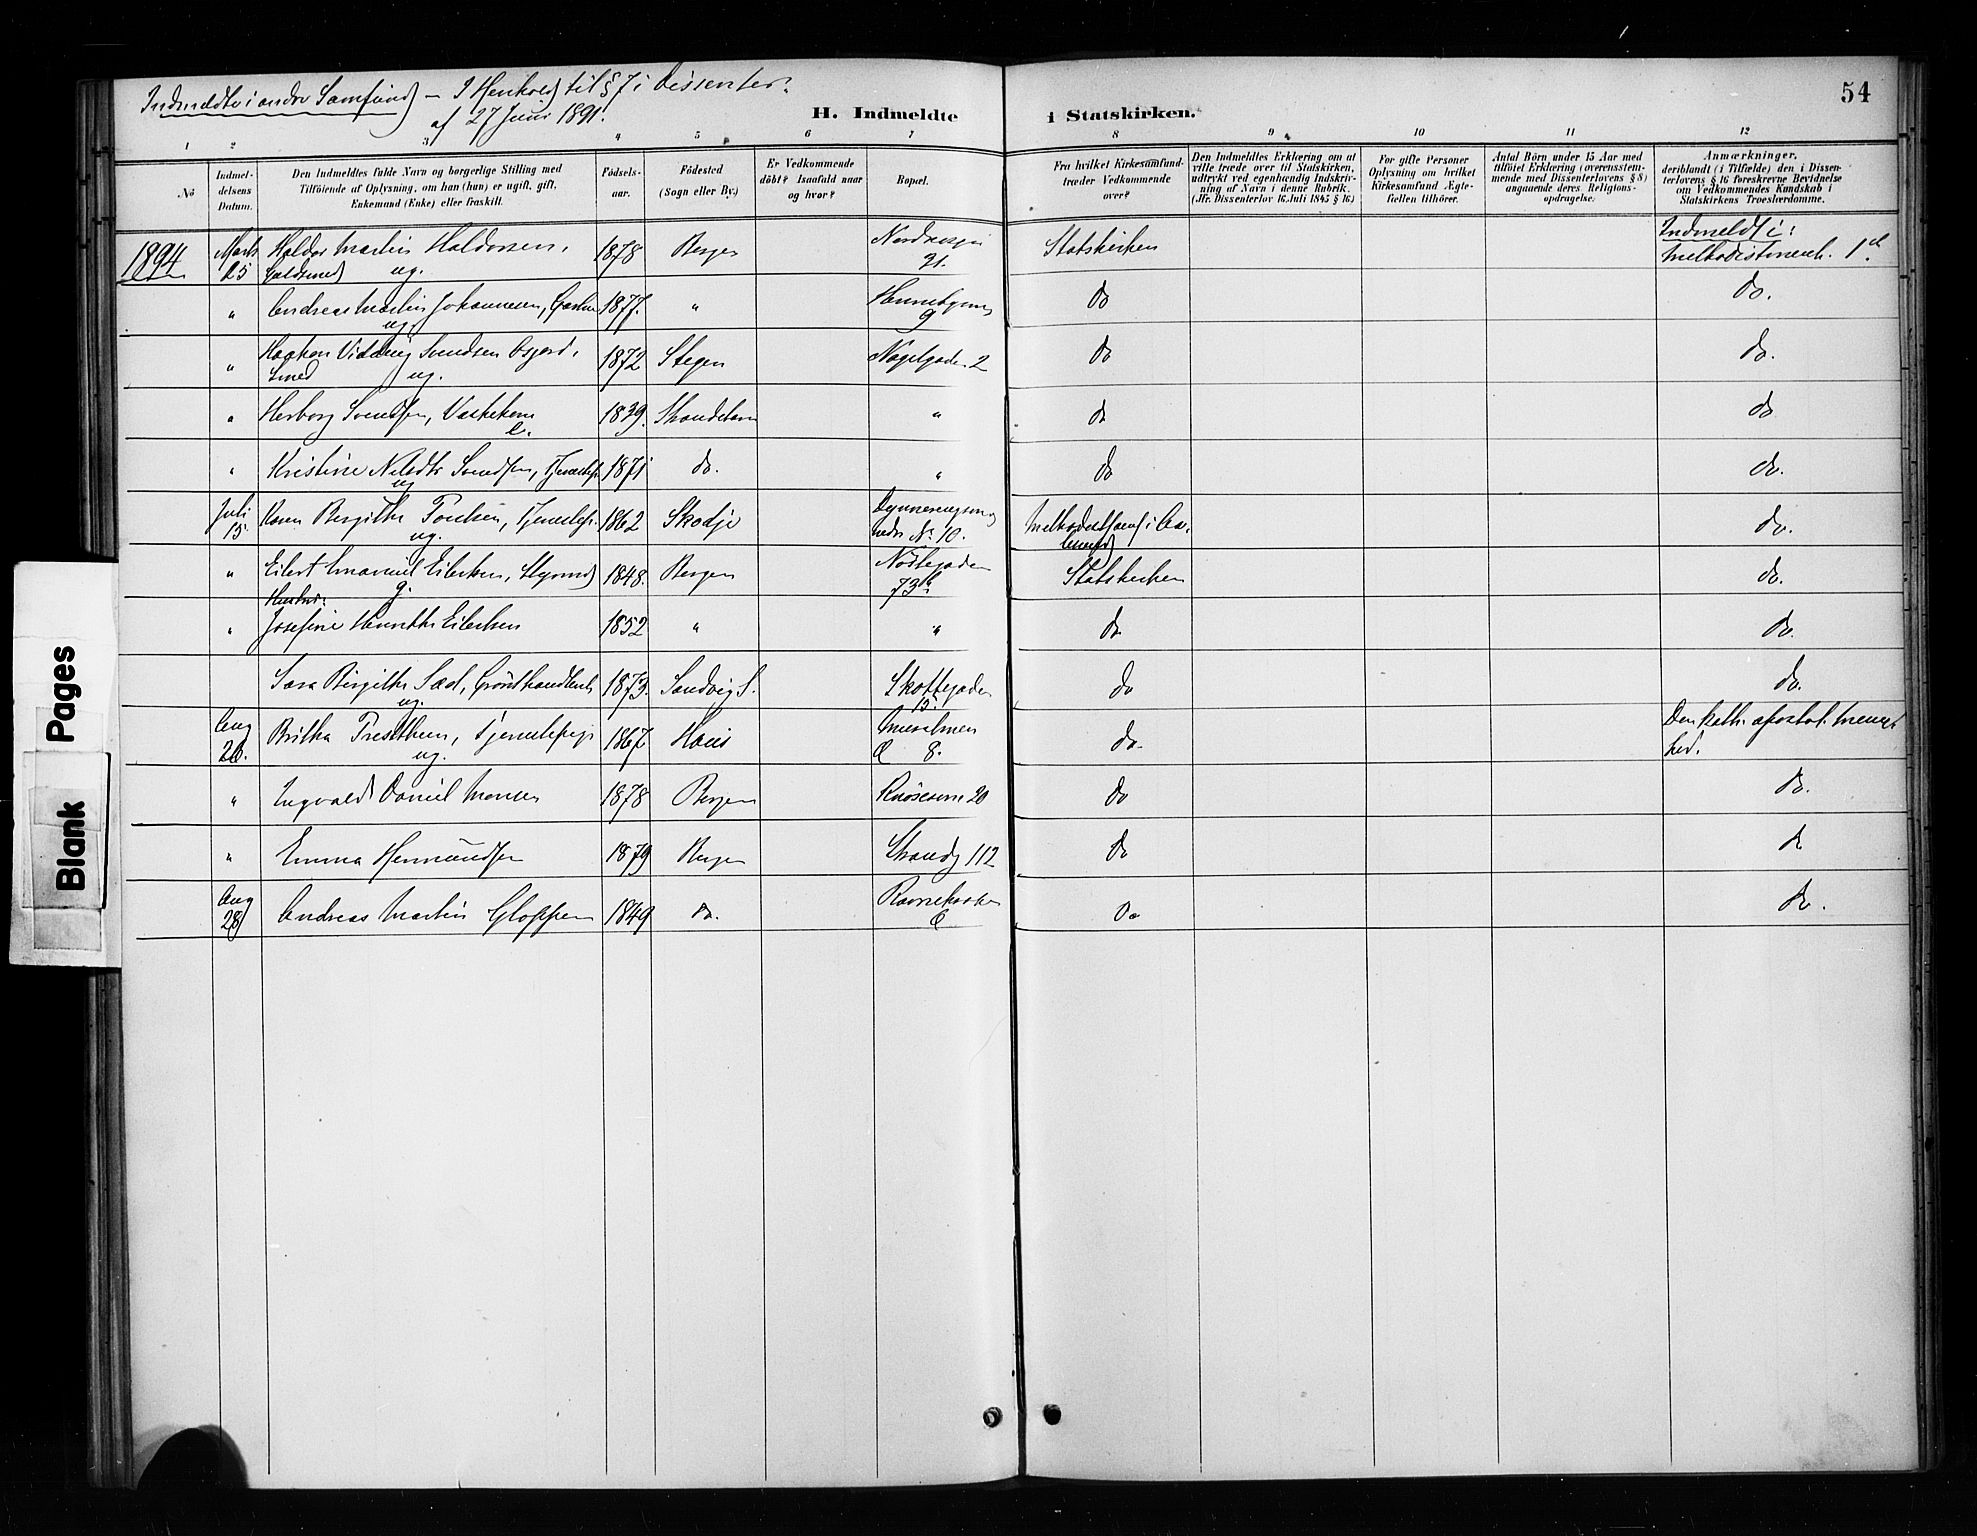 Indmeldte i andre Samfund - I Henhold til § 7 i Dissenter:
af 27 Juni 1891.
54
H. Indmeldte i Statskirken.
1 2 3 4 5 6 7 8 9 10 11 12
No
Indmeldelsens Datum.
Den Indmeldtes fulde Navn og borgerlige Stilling med Tilföiende af Oplysning, om han (hun) er ugift, gift, Enkemand (Enke) eller fraskilt.
Födselsaar.
Födested (Sogn eller By.)
Er Vedkommende döbt? Isaafald naar og hvor?
Bopæl.
Fra hvilket Kirkesamfund træder Vedkommende over?
Den Indmeldtes Erklæring om at ville træde over til Statskirken, udtrykt ved egenhændig Indskrivning af Navn i denne Rubrik. (Jfr. Dissenterlov 16. Juli 1845 § 16)
For gifte Personer Oplysning om hvilket Kirkesamfund Ægtefællen tilhörer.
Antal Börn under 15 Aar med tilföiet Erklæring (overensstemmende med Dissenterlovens § 8) angaaende deres Religionsopdragelse.
Anmærkninger, deriblandt (i Tilfælde) den i Dissenterlovens § 16 foreskrevne Bevidnelse om Vedkommendes Kundskab i Statskirkens Troeslærdomme.
1894 Marts 25 Haldor Martin Haldorsen, ug. 1878 Bergen 21. Statskirken Indmeldt i: Methodistmenh. 1st
" Andreas Martin Johannesen, ug. 1877. " 9 do do.
" Haakon Svendsen Smed ug. 1872 Stegen Nøgelgaden 2 do do.
" Herborg Svendsen, e. 1839. " do do
" Kristine Nilsdtr Svendsen, ug 1871 do. " do do.
Juli 15. Karen Bergithe ug. 1862 Skodje No 10. do.
" Eilert Emanuel Eilertsen, g. 1848. Bergen Nöstegaden 73b Statskirken do.
" Hustru: Josefine Eilertsen 1852 " " do do.
Sara Birgitte ug. 1873. Sandvig S. Skottegaden 15. do do.
Aug 26. Britha ug. 1867 Haus 8. do. Den kath. apostol. Menighed.
" Ingvald Daniel Monsen 1878 Bergen 20 do do.
" Emma Hermundsen 1879 Bergen Strandg 112 do do
Aug 28 Andreas Martin Gloppen 1849 do. Do do.
Blank Pages